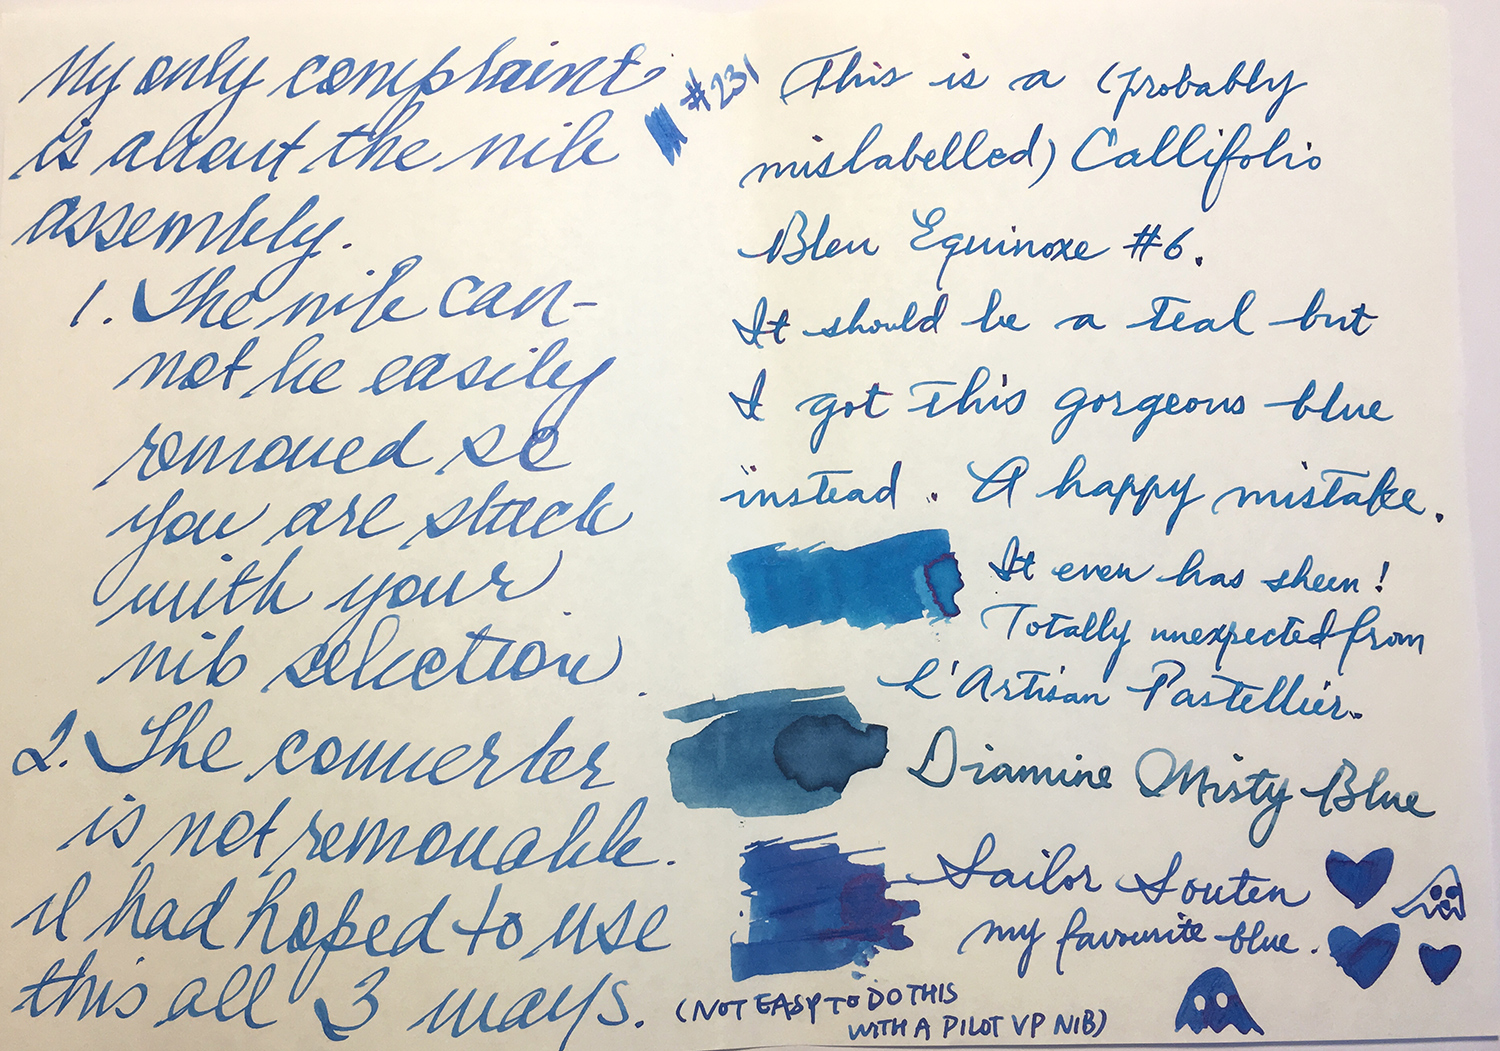 My only complaint
is about the nib
assembly.
1. The nib can-
not be easily
removed so
you are stuck
with your
nib selection.
2. The converter
is not removable.
I had hoped to use
this all 3 ways.
#231
This is a (probably
mislabelled) Callifolio
Bleu Equinoxe #6.
It should be a teal but
I got this gorgeous blue
instead. A happy mistake.
It even has sheen!
Totally unexpected from
L'Artisan Pastellier.
Diamine Misty Blue
Sailor Souten
my favourite blue.
(NOT EASY TO DO THIS
WITH A PILOT VP NIB)